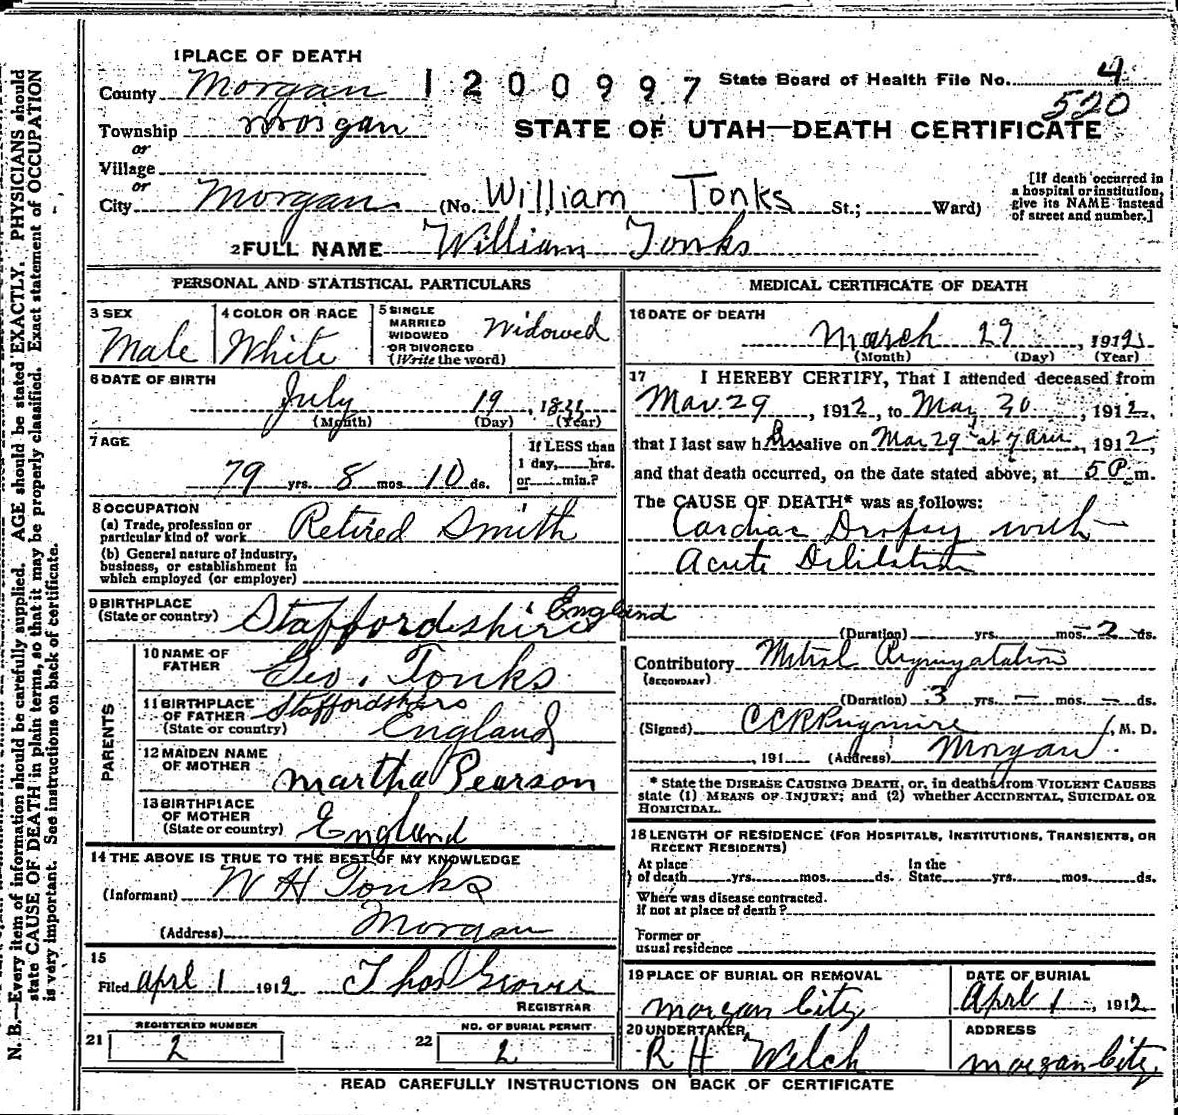 1 PLACE OF DEATH
County Morgan
1200997
State Board of Health File No. 4
520
Township Morgan
or
Village
or
STATE OF UTAH—DEATH CERTIFICATE
City Morgan (No. William Tonks St.; Ward)
[If death occurred in
a hospital or institution,
give its NAME instead
of street and number.]
2 FULL NAME William Tonks
PERSONAL AND STATISTICAL PARTICULARS
3 SEX
Male
4 COLOR OR RACE
White
5 SINGLE
MARRIED
WIDOWED
OR DIVORCED
(Write the word)
Widowed
6 DATE OF BIRTH
July 19, 18
(Month) (Day) (Year)
7 AGE
79 yrs. 8 mos. 10 ds.
If LESS than
1 day, hrs.
or min.?
8 OCCUPATION
(a) Trade, profession or
particular kind of work Retired Smith
(b) General nature of industry,
business, or establishment in
which employed (or employer)
9 BIRTHPLACE
(State or country) Staffordshire England
PARENTS
10 NAME OF
FATHER Geo. Tonks
11 BIRTHPLACE
OF FATHER
(State or country) Staffordshire
England
12 MAIDEN NAME
OF MOTHER Martha Pearson
13 BIRTHPLACE
OF MOTHER
(State or country) England
14 THE ABOVE IS TRUE TO THE BEST OF MY KNOWLEDGE
(Informant) W H Tonks
(Address) Morgan
15
Filed Aprl 1 1912 Thos Grover
REGISTRAR
21 REGISTERED NUMBER
2
22 NO. OF BURIAL PERMIT
2
MEDICAL CERTIFICATE OF DEATH
16 DATE OF DEATH
March 29, 1912
(Month) (Day) (Year)
17 I HEREBY CERTIFY, That I attended deceased from
Mar. 29, 1912, to Mar 30, 1912,
that I last saw h alive on Mar 29 at 7 am, 1912,
and that death occurred, on the date stated above, at 5 P m.
The CAUSE OF DEATH* was as follows:
Cardiac Dropsy with
Acute
(Duration) yrs. mos. 2 ds.
Contributory Mitral Regurgatation
(SECONDARY)
(Duration) 3 yrs. — mos. — ds.
(Signed) M. D.
, 191 (Address) Morgan
* State the DISEASE CAUSING DEATH, or, in deaths from VIOLENT CAUSES
state (1) MEANS OF INJURY; and (2) whether ACCIDENTAL, SUICIDAL OR
HOMICIDAL.
18 LENGTH OF RESIDENCE (FOR HOSPITALS, INSTITUTIONS, TRANSIENTS, OR
RECENT RESIDENTS)
At place
of death yrs. mos. ds.
In the
State yrs. mos. ds.
Where was disease contracted.
if not at place of death?
Former or
usual residence
19 PLACE OF BURIAL OR REMOVAL
Morgan City
DATE OF BURIAL
Aprl 1, 1912
20 UNDERTAKER
R H Welch
ADDRESS
Morgan City
READ CAREFULLY INSTRUCTIONS ON BACK OF CERTIFICATE
N. B.—Every item of information should be carefully supplied. AGE should be stated EXACTLY. PHYSICIANS should
state CAUSE OF DEATH in plain terms, so that it may be properly classified. Exact statement of OCCUPATION
is very important. See instructions on back of certificate.